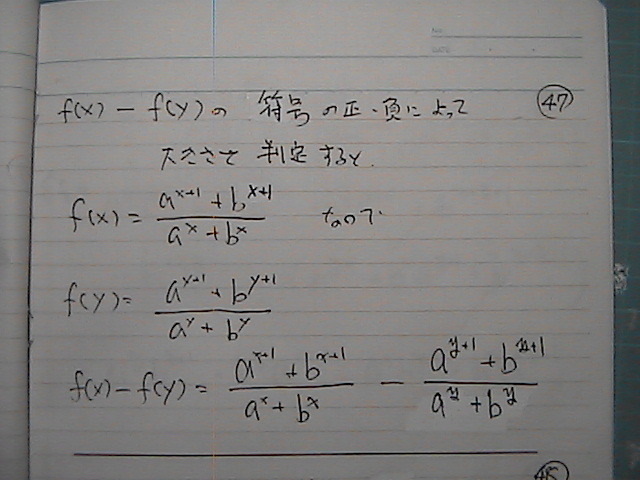 NO.
DATE
f(x) - f(y)の 符号の正・負によって ㊼
大きさを判定すると、
f(x) = (a^{x+1} + b^{x+1}) / (a^x + b^x) なので
f(y) = (a^{y+1} + b^{y+1}) / (a^y + b^y)
f(x) - f(y) = (a^{x+1} + b^{x+1}) / (a^x + b^x) - (a^{y+1} + b^{y+1}) / (a^y + b^y)